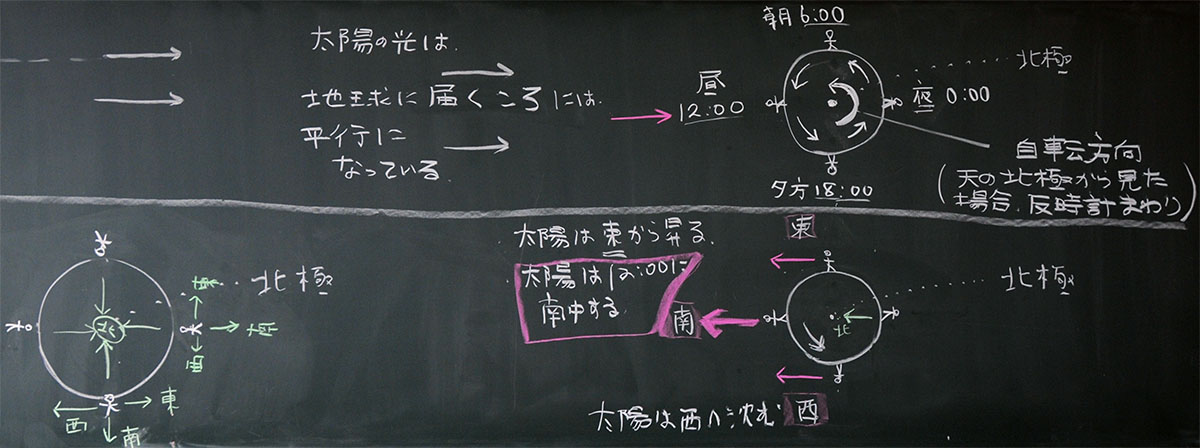 太陽の光は、
地球に届くころには、
平行に
なっている。
朝6:00
昼
12:00
夜 0:00
夕方18:00
北極
自転方向
(天の北極から見た
場合、反時計まわり)
北極
北
東
西
南
東
西
南
太陽は東から昇る。
太陽は12:00に
南中する。
東
南
西
北
北極
太陽は西へ沈む